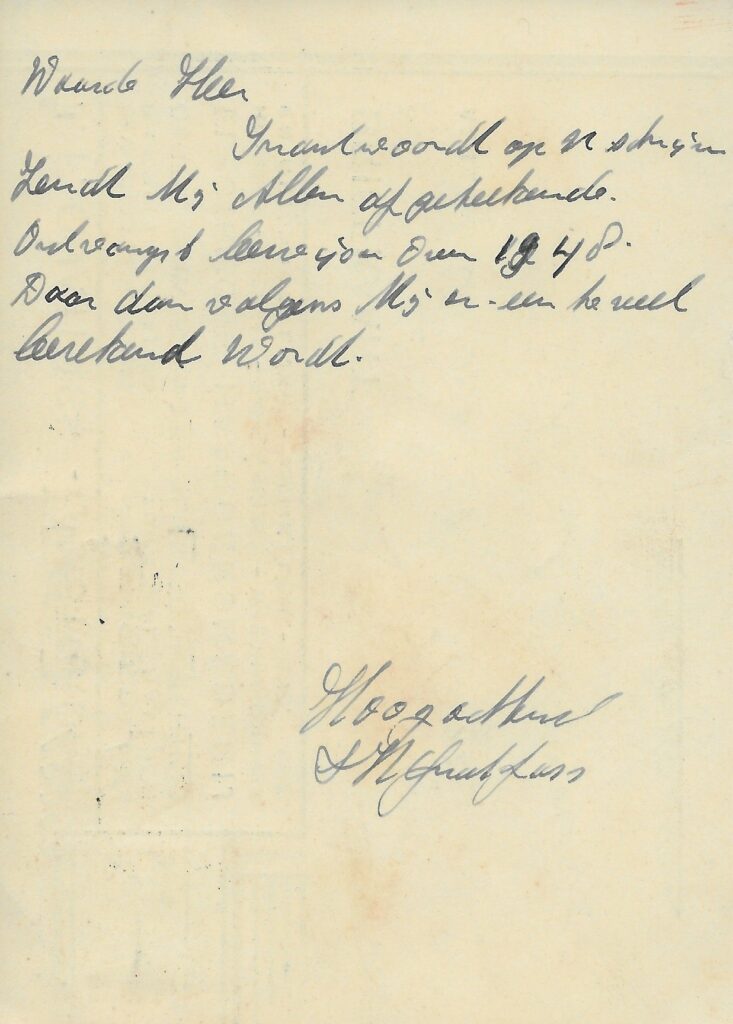 Waarde Heer
In antwoordt op U schrijven
Zendt Mij Allen af geteekende.
Ontvangst bewijzen over 1948.
Daar dan volgens Mij er een te veel
berekend Wordt.
Hoogachtend